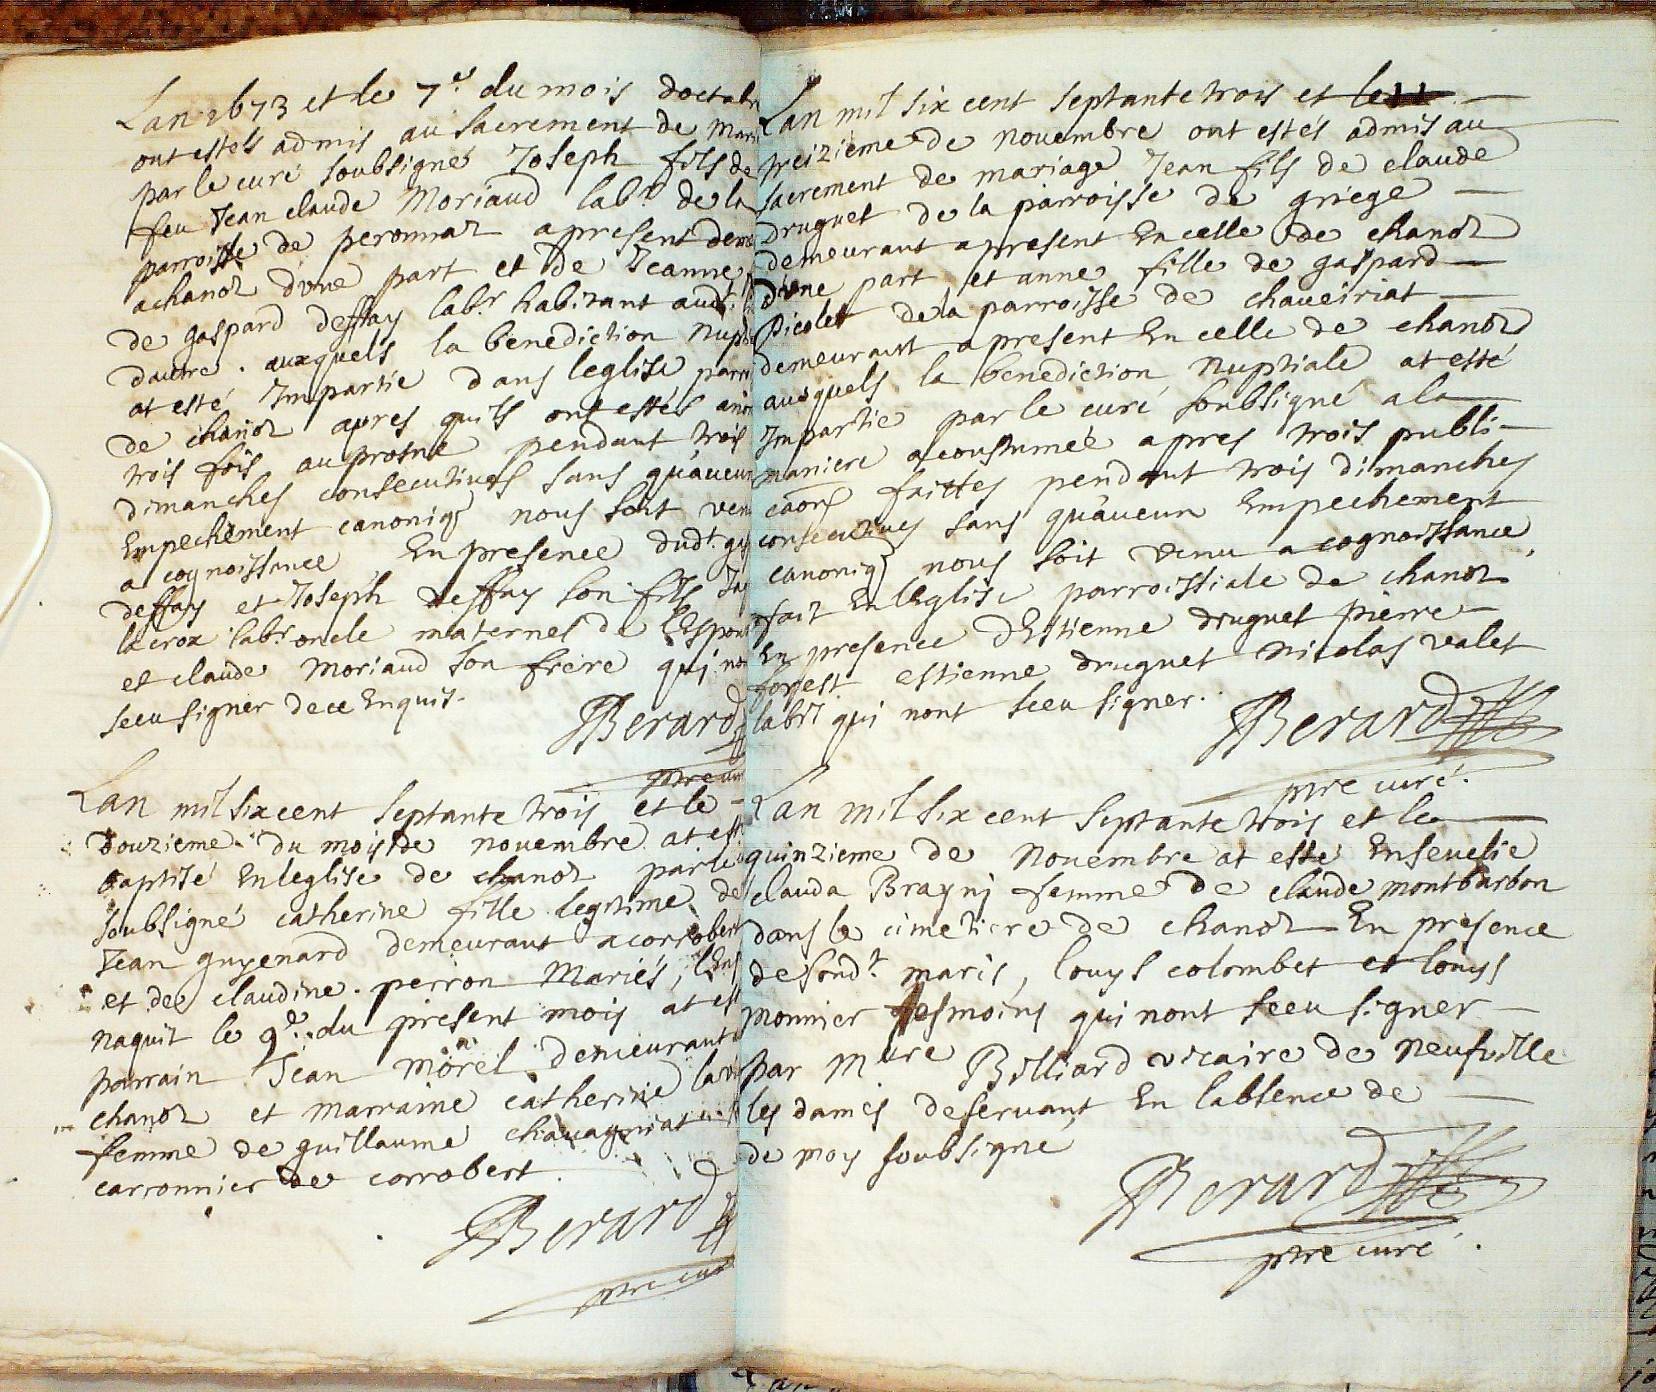 Lan 1673 et le 7.e du mois doctob
ont estes admis au sacrement de mari
par le curé soubsigné Joseph fils de
feu Jean claude Moriaud labr. de la
parroisse de peronnaz a present deme
a chanoz dune part et de Jeanne
de gaspard deffay labr. habitant audt.
dautre. auxquels la benediction nup
at esté Impartie dans leglise parr
de chanoz apres quils ont estés
trois fois au prosne pendant trois
dimanches consecutives sans quaucun
Empechement canoniq nous soit ven
a cognoissance En presence dudt.
deffay et Joseph deffay son fils
lacroix labr. oncle maternel de lEspou
et claude Moriaud son frere qui
sceu signer de ce Enquis.
Berard
ptre cur
Lan mil six cent septante trois et le
douzieme du mois de novembre at est
baptisé En leglise de chanoz par le
soubsigné catherine fille legitime de
Jean guyenard demeurant a corrobert
et de claudine perron Mariés, lEnf
naquit le 9e. du present mois at est
parrain Jean morel demeurant a
chanoz et marraine catherine
femme de guillaume chavagniat
carronnier de corrobert.
Berard
ptre cur
Lan mil six cent septante trois et le
treizieme de novembre ont estés admis au
sacrement de mariage Jean fils de claude
druguet de la parroisse de griege
demeurant a present En celle de chanoz
dune part et anne fille de gaspard
Picolet de la parroisse de chaveiriat
demeurant a present En celle de chanoz
ausquels la benediction Nuptiale at esté
Impartie par le curé soubsigné a la
maniere acoustumée apres trois publi-
caons faittes pendant trois dimanches
consecutives sans quaucun Empechement
canoniq nous soit venu a cognoissance,
fait En lEglise parroissiale de chanoz
En presence dEstienne druguet pierre
forest estienne druguet Nicolas valet
labrs. qui nont sceu signer.
Berard
ptre curé.
Lan mil six cent septante trois et le
quinzieme de Novembre at esté Ensevelie
clauda Brayni femme de claude montbarbon
dans le cimetiere de chanoz En presence
de sondt. maris, louys colombet et louys
monnier tesmoins qui nont sceu signer
par Mre Billiard vicaire de neufville
les dames deservant En labsence de
de moy soubsigne
Berard
ptre curé.